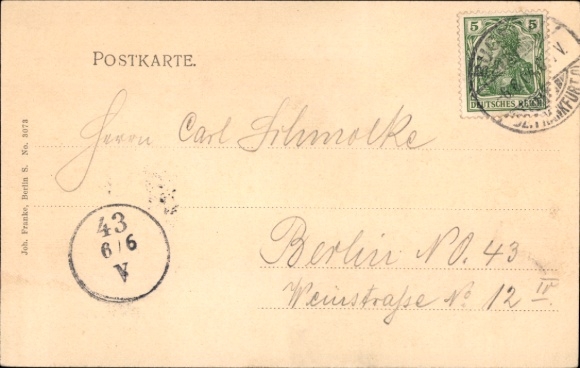 POSTKARTE.
5 5
DEUTSCHES REICH
Herrn Carl Schmolke
Berlin NO. 43
Weinstraße No 12 IV
43
6/6
V
Joh. Franke, Berlin S. No. 3073